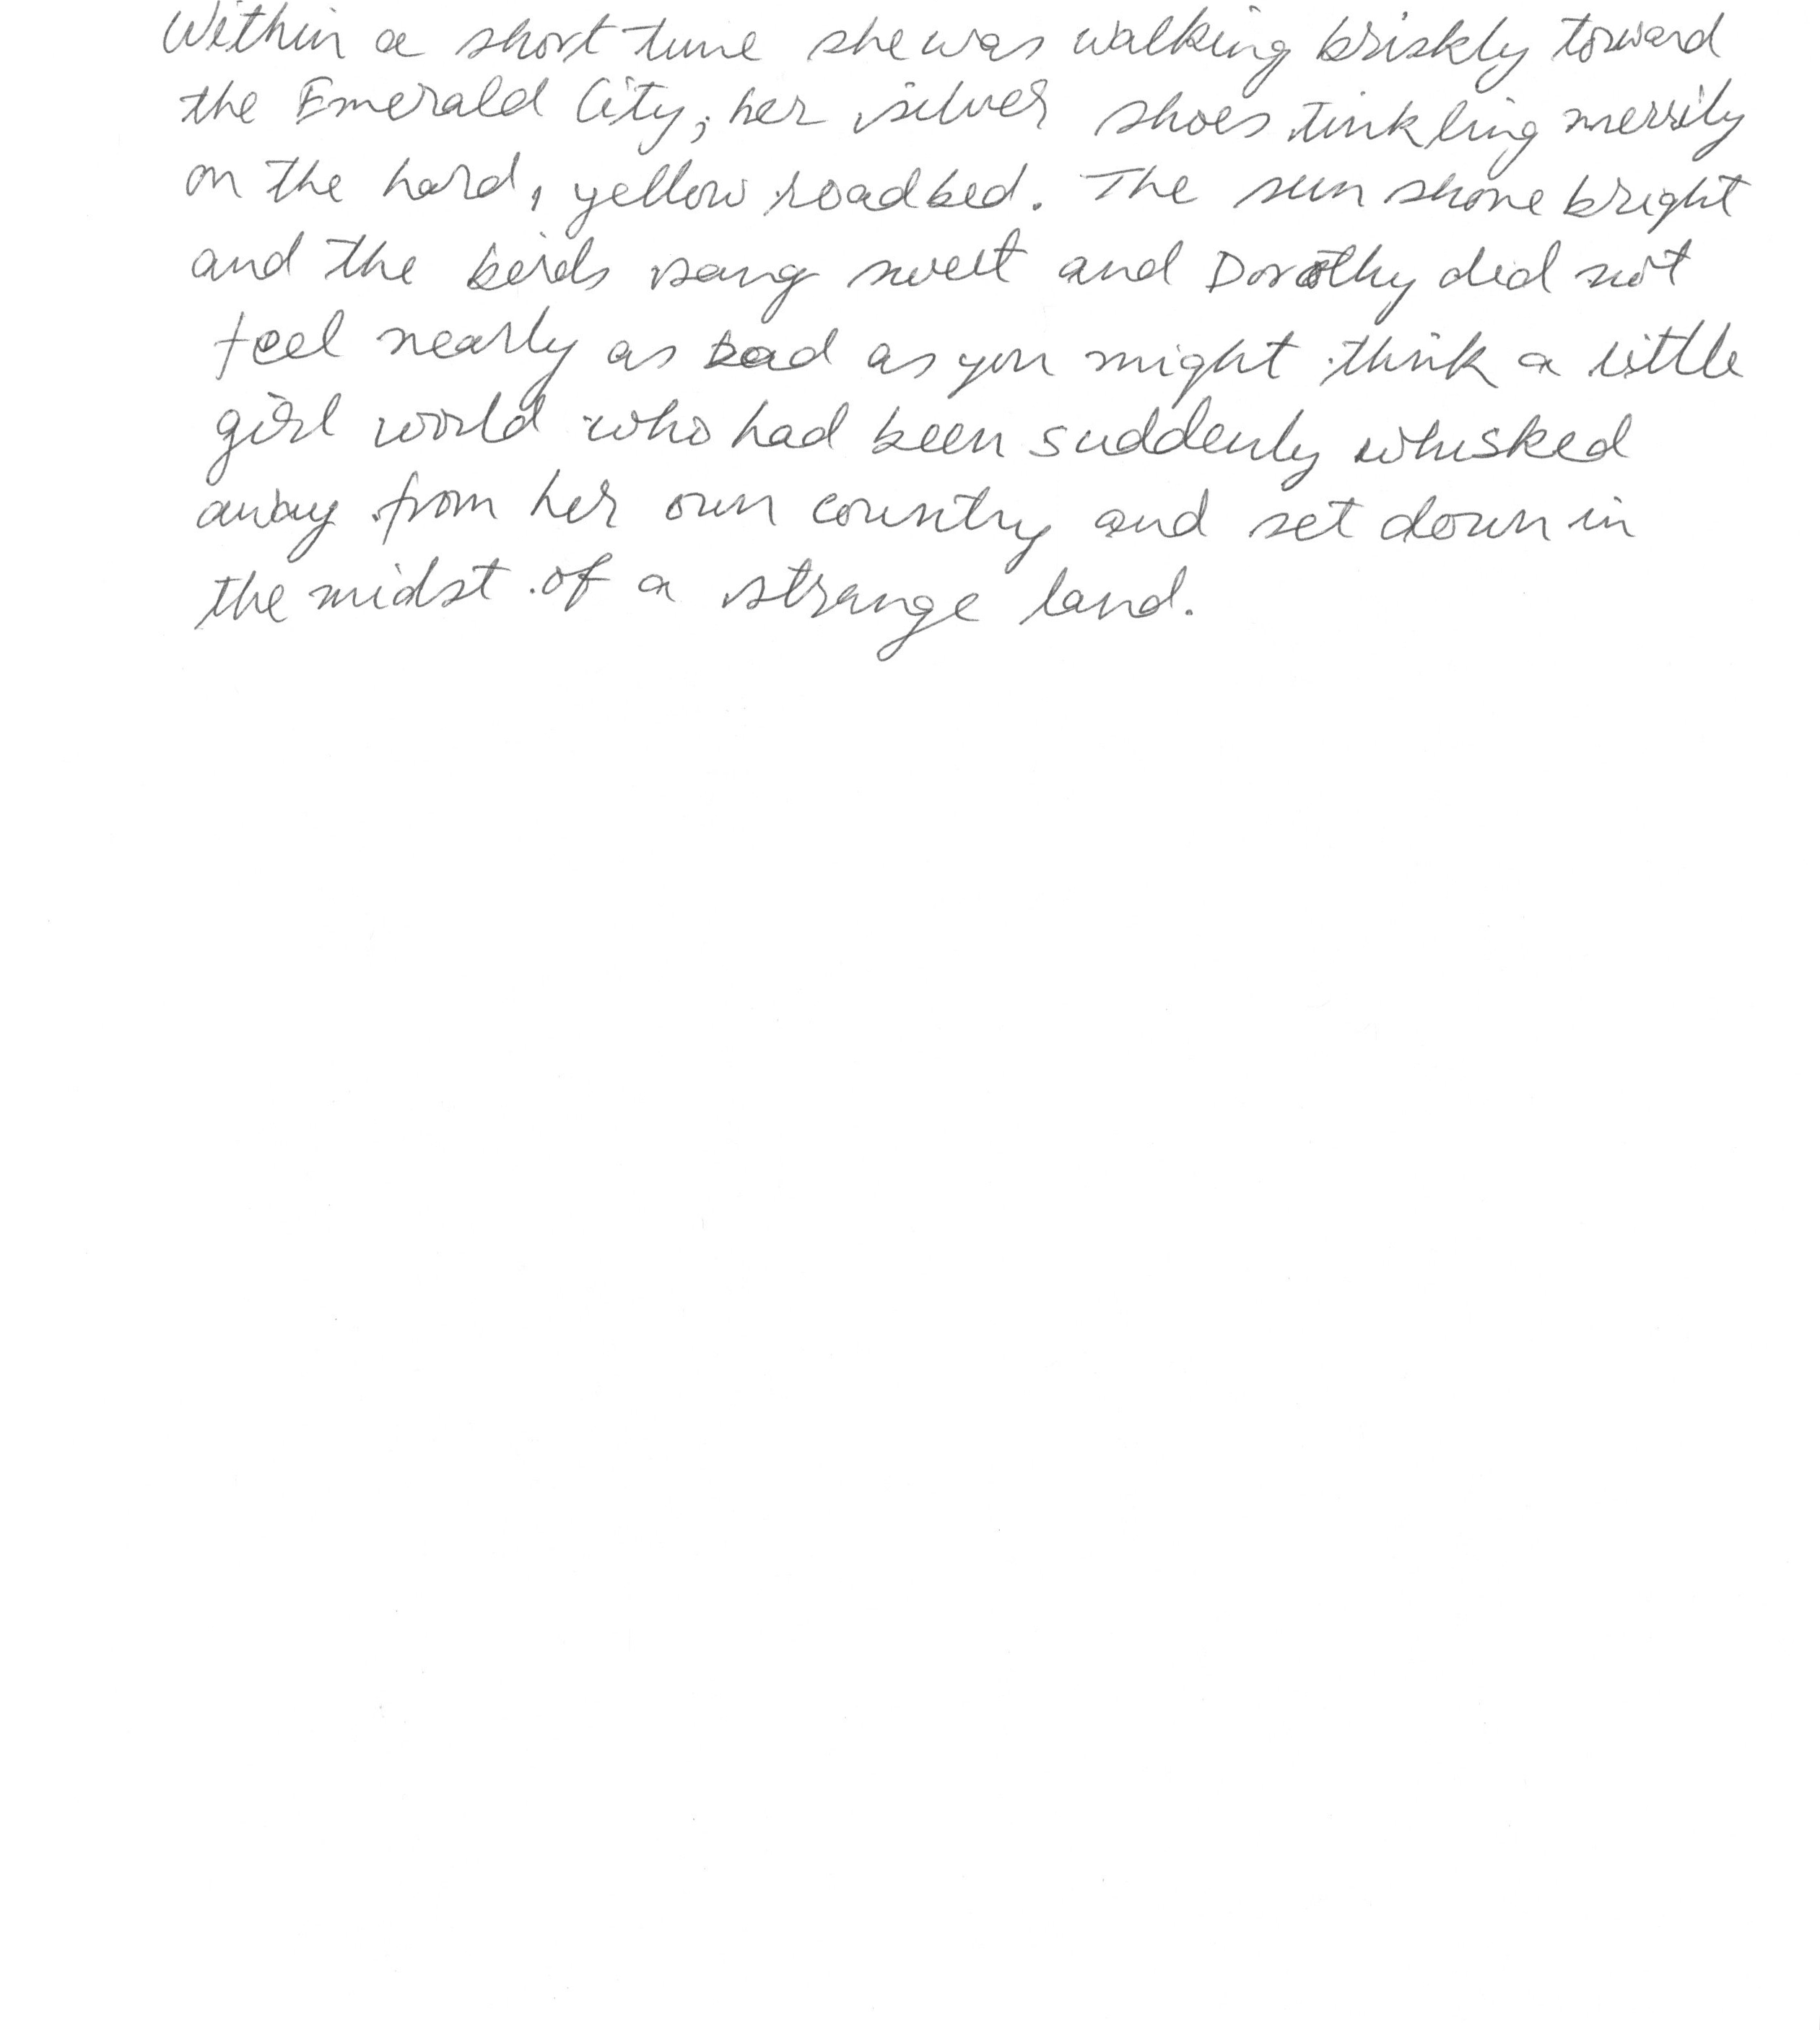 Within a short time she was walking briskly toward
the Emerald City; her silver shoes tinkling merrily
on the hard, yellow roadbed. The sun shone bright
and the birds sang sweet and Dorothy did not
feel nearly as bad as you might think a little
girl world who had been suddenly whisked
away from her own country and set down in
the midst of a strange land.